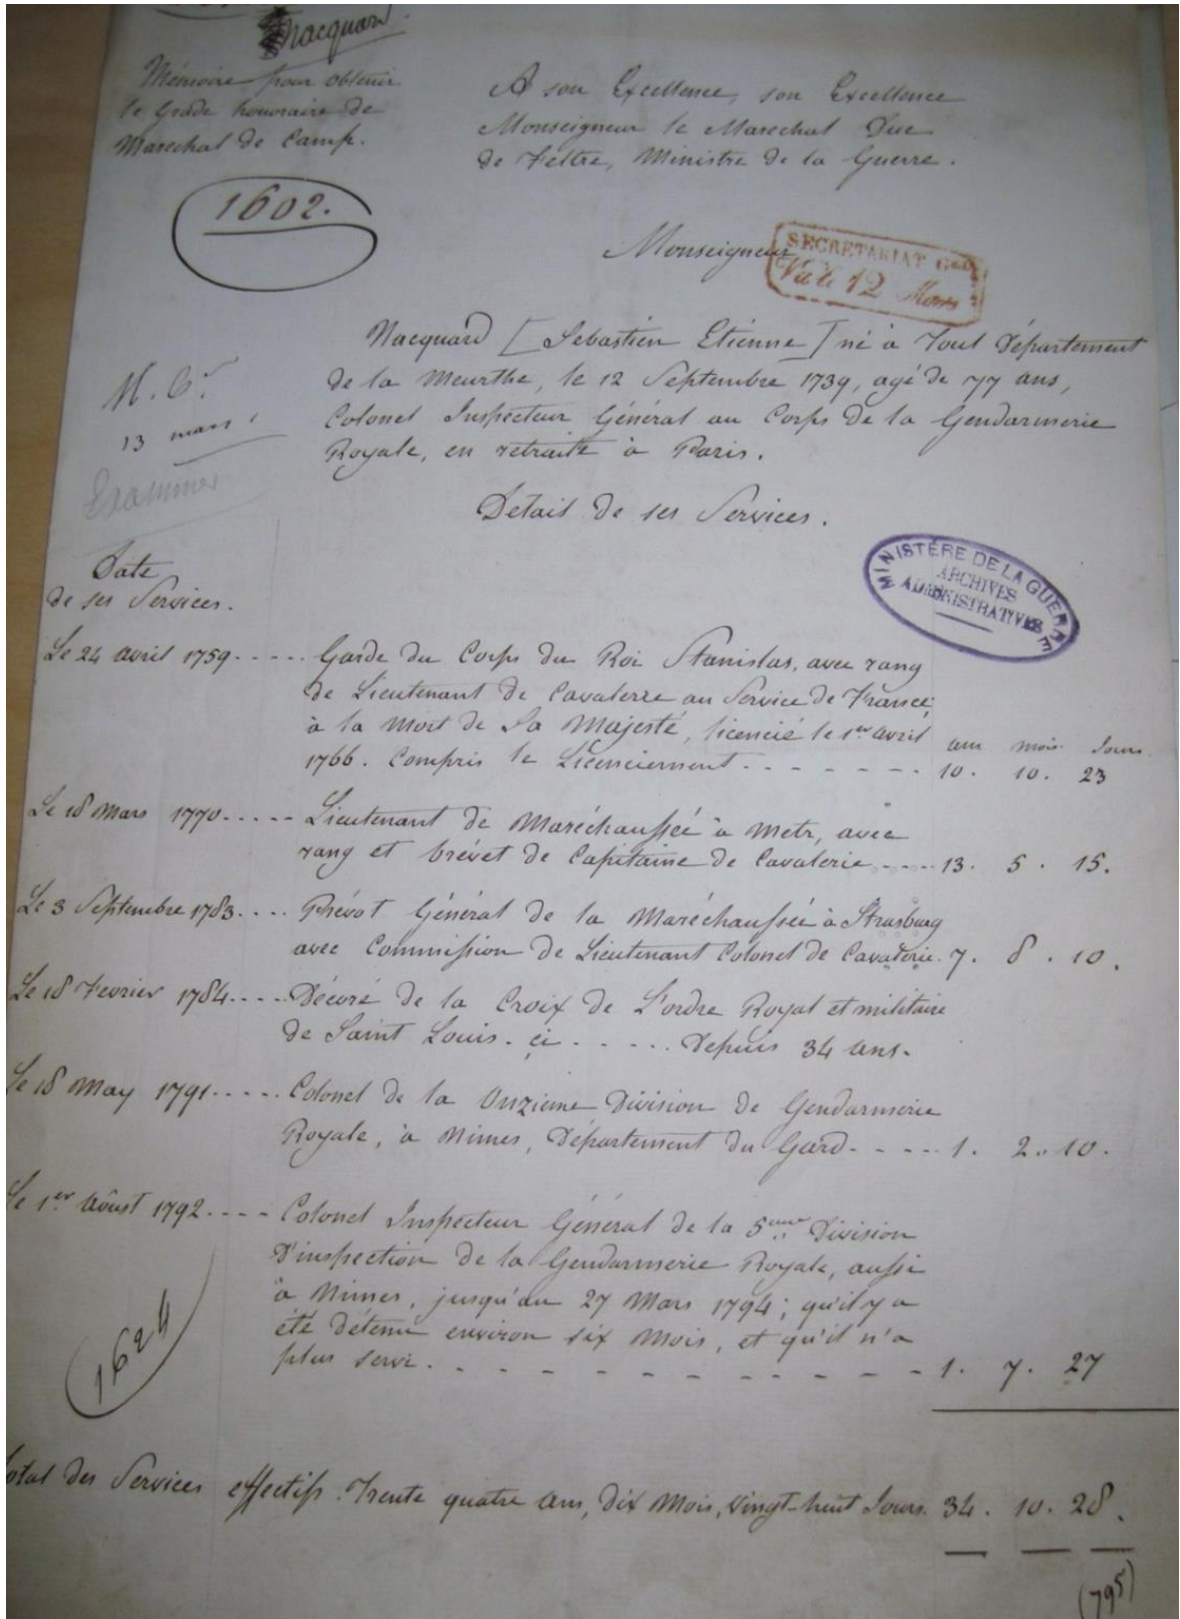 Nacquard
Mémoire pour obtenir
le Grade honoraire de
Marechal de Camp.
1602.
A son Excellence, son Excellence
Monseigneur le Marechal Duc
de Feltre, Ministre de la Guerre.
Monseigneur
SECRETARIAT Gral
12 Mars
M. Cr
13 mars
Examiner
Nacquard [Sebastien Etienne] né à Toul Département
de la Meurthe, le 12 Septembre 1739, agé de 77 ans,
Colonel Inspecteur Général au Corps de la Gendarmerie
Royale, en retraite à Paris.
Detail de ses Services.
MINISTÈRE DE LA GUERRE
ARCHIVES
ADMINISTRATIVES
Date
de ses Services.
Le 24 avril 1759..... Garde du Corps du Roi Stanislas, avec rang
de Lieutenant de Cavalerie au Service de France;
à la Mort de Sa Majesté, licencié le 1er avril
ans mois Jours
1766. Compris le Licenciement....... 10. 10. 23
Le 18 Mars 1770..... Lieutenant de Maréchaussée à Metz, avec
rang et brévet de Capitaine de Cavalerie.... 13. 5. 15.
Le 3 Septembre 1783.... Prévot Général de la Maréchaussée à Strasbourg
avec Commission de Lieutenant Colonel de Cavalerie. 7. 8. 10.
Le 18 Fevrier 1784.... Décoré de la Croix de L'ordre Royal et militaire
de Saint Louis. ci ..... Depuis 34 ans.
Le 18 May 1791..... Colonel de la Onzieme Division de Gendarmerie
Royale, à Nimes, Département du Gard..... 1. 2. 10.
Le 1er Aôust 1792.... Colonel Inspecteur Général de la 5eme Division
D'inspection de la Gendarmerie Royale, aussi
à Nimes, jusqu'au 27 Mars 1794; qu'il y a
été détenu environ six Mois, et qu'il n'a
plus servi............ 1. 7. 27
1624
otal des Services effectifs. Trente quatre ans, Dix Mois, vingt-huit Jours. 34. 10. 28.
(795)